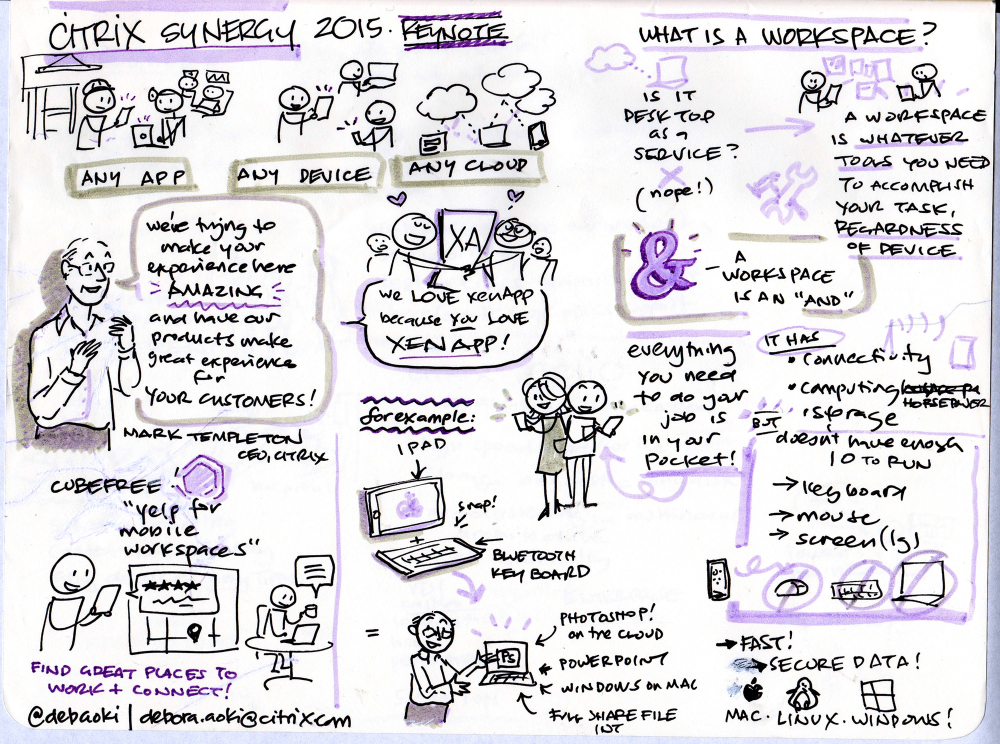 CITRIX SYNERGY 2015. KEYNOTE
ANY APP
ANY DEVICE
ANY CLOUD
we're trying to
make your
experience here
AMAZING
and have our
products make
great experience
for
YOUR CUSTOMERS!
MARK TEMPLETON
CEO, CITRIX
XA
we LOVE XenApp
because you LOVE
XENAPP!
CUBEFREE
"yelp for
mobile
workspaces"
★★★★
FIND GREAT PLACES TO
WORK + CONNECT!
@debaoki | debora.aoki@citrix.com
for example:
IPAD
snap!
+
BLUETOOTH
KEYBOARD
=
PS
PHOTOSHOP!
on the CLOUD
POWERPOINT
WINDOWS ON MAC
FULL SHARE FILE
INT
WHAT IS A WORKSPACE?
IS IT
DESKTOP
as a
SERVICE?
(nope!)
A WORKSPACE
IS WHATEVER
TOOLS YOU NEED
TO ACCOMPLISH
YOUR TASK,
REGARDNESS
OF DEVICE
&
- A
WORKSPACE
IS AN "AND"
everything
you need
to do your
job is
in your
pocket!
IT HAS
• connectivity
• computing HORSEPOWER
• storage
BUT
doesn't have enough
IO TO RUN
→ keyboard
→ mouse
→ screen (lg)
→ FAST!
→ SECURE DATA!
MAC • LINUX • WINDOWS!